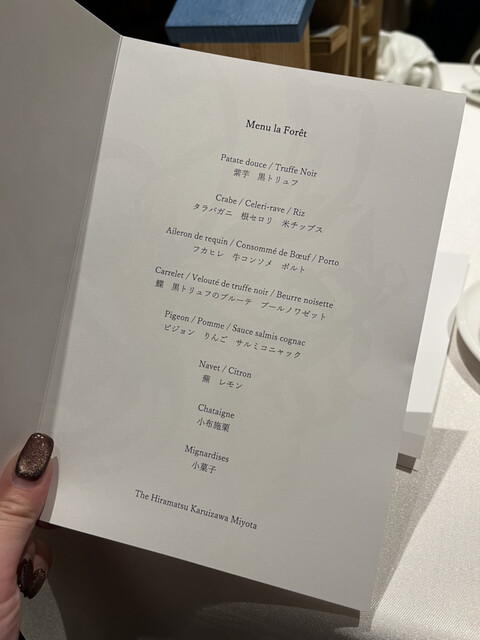 Menu la Forêt
Patate douce / Truffe Noir
紫芋 黒トリュフ
Crabe / Celeri-rave / Riz
タラバガニ 根セロリ 米チップス
Aileron de requin / Consommé de Bœuf / Porto
フカヒレ 牛コンソメ ポルト
Carrelet / Velouté de truffe noir / Beurre noisette
鰈 黒トリュフのブルーテ ブールノワゼット
Pigeon / Pomme / Sauce salmis cognac
ピジョン りんご サルミコニャック
Navet / Citron
蕪 レモン
Chataigne
小布施栗
Mignardises
小菓子
The Hiramatsu Karuizawa Miyota